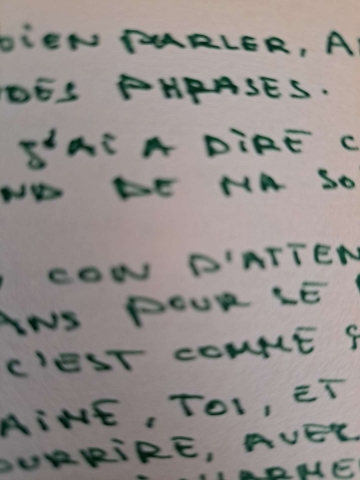 BIEN PARLER, A
DES PHRASES.
J'AI A DIRE C
ND DE MA SO
CON D'ATTEN
ANS POUR SE
C'EST COMME Ç
AINE, TOI, ET
OURRIRE, AVEC